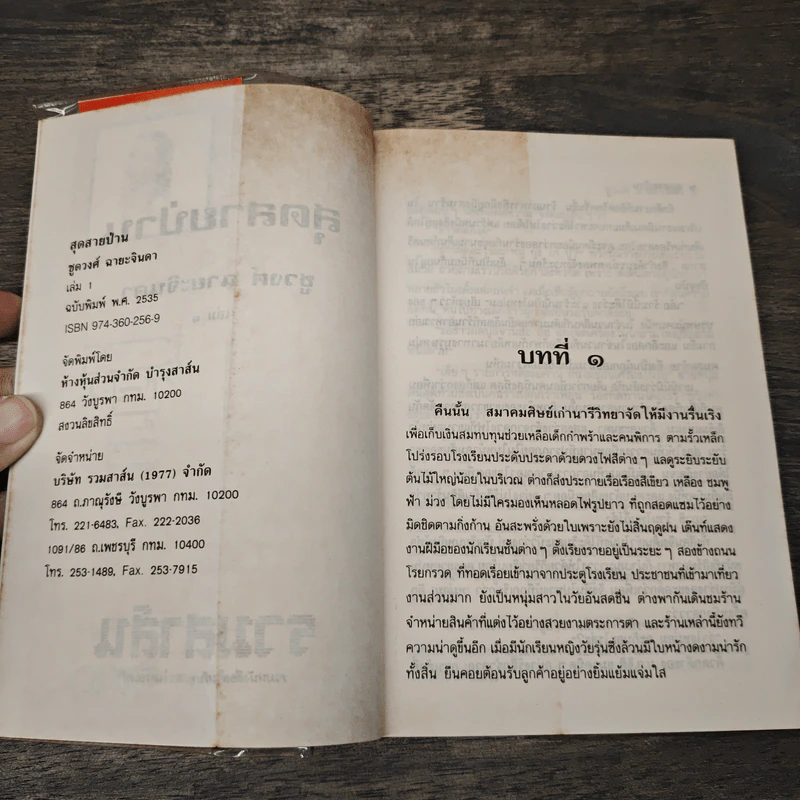 สุดสายป่าน
ชูวงศ์ ฉายะจินดา
เล่ม 1
ฉบับพิมพ์ พ.ศ. 2535
ISBN 974-360-256-9
จัดพิมพ์โดย
ห้างหุ้นส่วนจำกัด บำรุงสาส์น
864 วังบูรพา กทม. 10200
สงวนลิขสิทธิ์
จัดจำหน่าย
บริษัท รวมสาส์น (1977) จำกัด
864 ถ.ภาณุรังษี วังบูรพา กทม. 10200
โทร. 221-6483, Fax. 222-2036
1091/86 ถ.เพชรบุรี กทม. 10400
โทร. 253-1489, Fax. 253-7915
บทที่ ๑
คืนนั้น สมาคมศิษย์เก่านารีวิทยาจัดให้มีงานรื่นเริง
เพื่อเก็บเงินสมทบทุนช่วยเหลือเด็กกำพร้าและคนพิการ ตามรั้วเหล็ก
โปร่งรอบโรงเรียนประดับประดาด้วยดวงไฟสีต่างๆ แลดูระยิบระยับ
ต้นไม้ใหญ่น้อยในบริเวณ ต่างก็ส่งประกายเรื่อเรืองสีเขียว เหลือง ชมพู
ฟ้า ม่วง โดยไม่มีใครมองเห็นหลอดไฟรูปยาว ที่ถูกสอดแซมไว้อย่าง
มิดชิดตามกิ่งก้าน อันสะพรั่งด้วยใบเพราะยังไม่สิ้นฤดูฝน เต๊นท์แสดง
งานฝีมือของนักเรียนชั้นต่างๆ ตั้งเรียงรายอยู่เป็นระยะๆ สองข้างถนน
โรยกรวด ที่ทอดเรื่อยเข้ามาจากประตูโรงเรียน ประชาชนที่เข้ามาเที่ยว
งานส่วนมาก ยังเป็นหนุ่มสาวในวัยอันสดชื่น ต่างพากันเดินชมร้าน
จำหน่ายสินค้าที่แต่งไว้อย่างสวยงามตระการตา และร้านเหล่านี้ยังทวี
ความน่าดูขึ้นอีก เมื่อมีนักเรียนหญิงวัยรุ่นซึ่งล้วนมีใบหน้างดงามน่ารัก
ทั้งสิ้น ยืนคอยต้อนรับลูกค้าอยู่อย่างยิ้มแย้มแจ่มใส